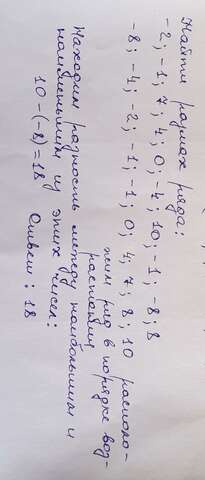 Найти размах ряда:
-2; -1; 7; 4; 0; -4; 10; -1; -8; 8
-8; -4; -2; -1; -1; 0; 4; 7; 8; 10 располо-
жим ряд в порядке воз-
растания
Находим разность между наибольшим и
наименьшим из этих чисел:
10-(-8)=18 Ответ: 18